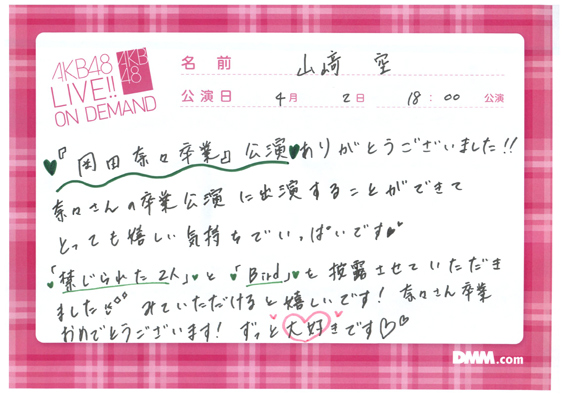 AKB48
LIVE!!
ON DEMAND
AKB
48
名前 山﨑 空
公演日 4月 2日 18:00 公演
『岡田奈々卒業』公演ありがとうございました!!
奈々さんの卒業公演に出演することができて
とっても嬉しい気持ちでいっぱいです
「禁じられた2人」と「Bird」を披露させていただき
ました みていただけると嬉しいです! 奈々さん卒業
おめでとうございます! ずっと大好きです♡♡
DMM.com